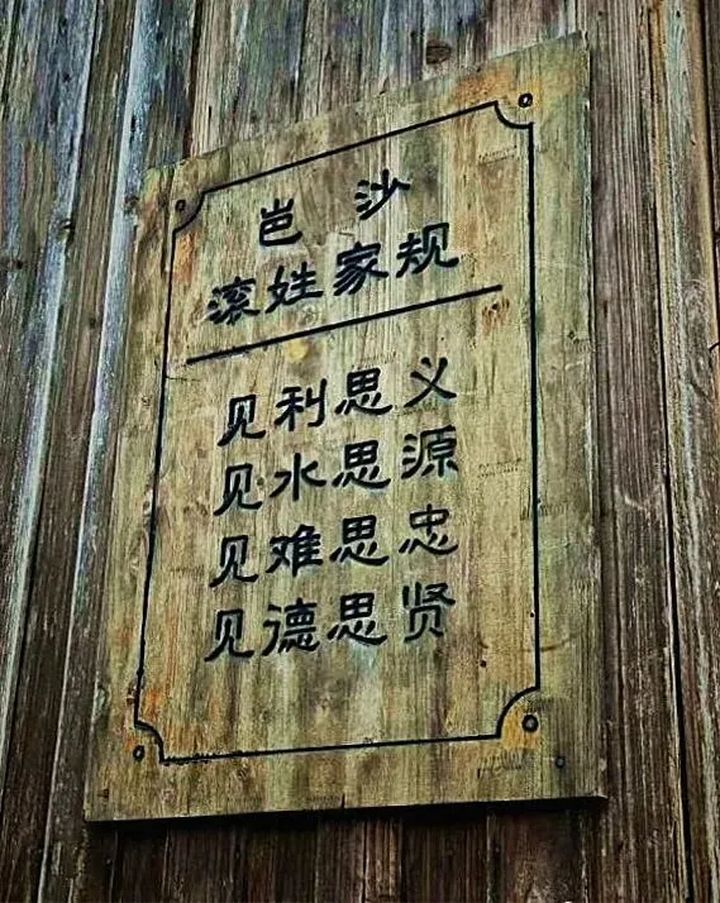 岜 沙
滚姓家规
见利思义
见水思源
见难思忠
见德思贤